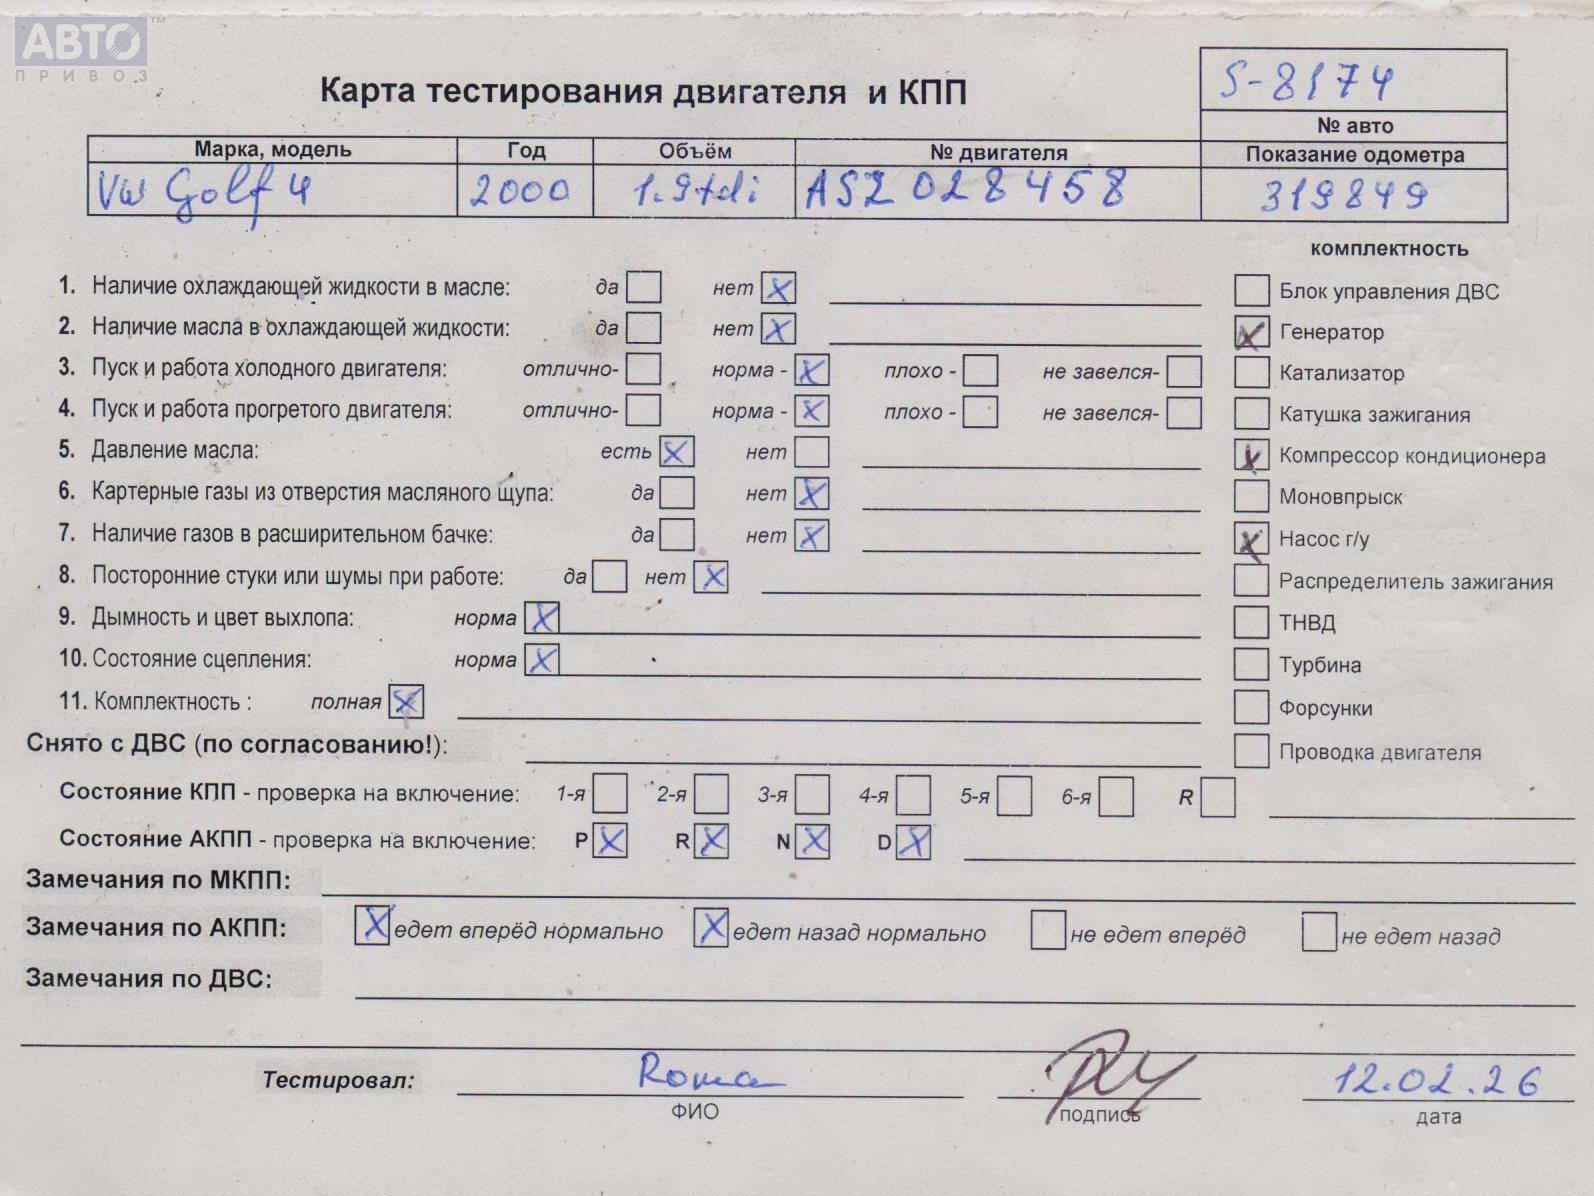 АВТО™
ПРИВОЗ
Карта тестирования двигателя и КПП
S-8174
№ авто
Марка, модель Год Объём № двигателя Показание одометра
VW Golf 4 2000 1.9tdi ASZ 028458 319849
комплектность
1. Наличие охлаждающей жидкости в масле: да нет X Блок управления ДВС
2. Наличие масла в охлаждающей жидкости: да нет X X Генератор
3. Пуск и работа холодного двигателя: отлично- норма - X плохо - не завелся- Катализатор
4. Пуск и работа прогретого двигателя: отлично- норма - X плохо - не завелся- Катушка зажигания
5. Давление масла: есть X нет X Компрессор кондиционера
6. Картерные газы из отверстия масляного щупа: да нет X Моновпрыск
7. Наличие газов в расширительном бачке: да нет X X Насос г/у
8. Посторонние стуки или шумы при работе: да нет X Распределитель зажигания
9. Дымность и цвет выхлопа: норма X ТНВД
10. Состояние сцепления: норма X Турбина
11. Комплектность : полная X Форсунки
Снято с ДВС (по согласованию!): Проводка двигателя
Состояние КПП - проверка на включение: 1-я 2-я 3-я 4-я 5-я 6-я R
Состояние АКПП - проверка на включение: P X R X N X D X
Замечания по МКПП:
Замечания по АКПП: X едет вперёд нормально X едет назад нормально не едет вперёд не едет назад
Замечания по ДВС:
Тестировал: Roma 12.02.26
ФИО подпись дата